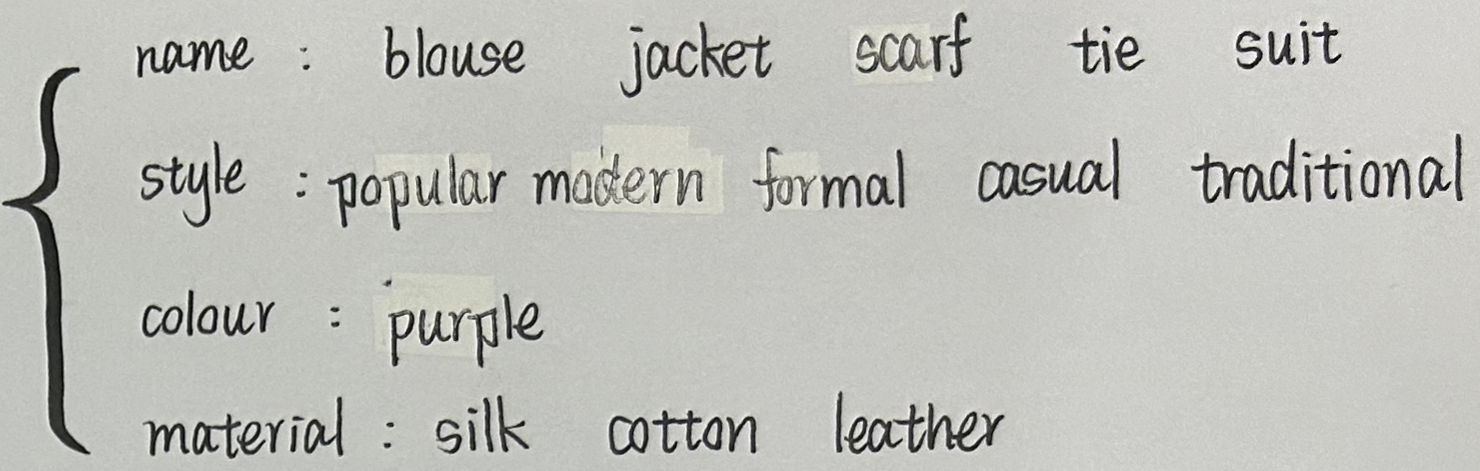 name : blouse jacket scarf tie suit
style : popular modern formal casual traditional
colour : purple
material : silk cotton leather